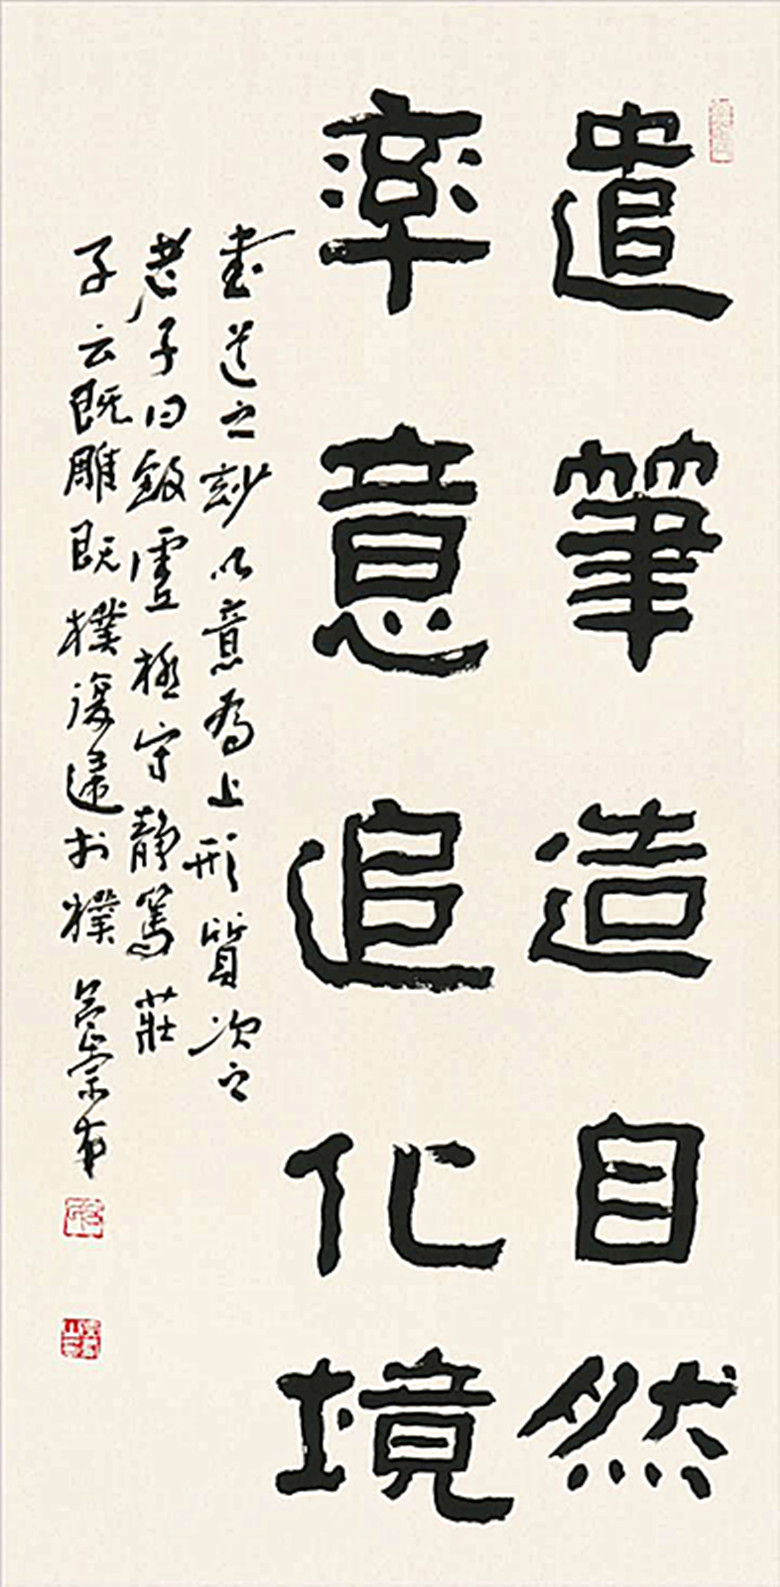 遣筆造自然
率意追化境
書道之妙以意為上形質次之
老子曰致虛極守静篤莊
子云既雕既樸復還於樸